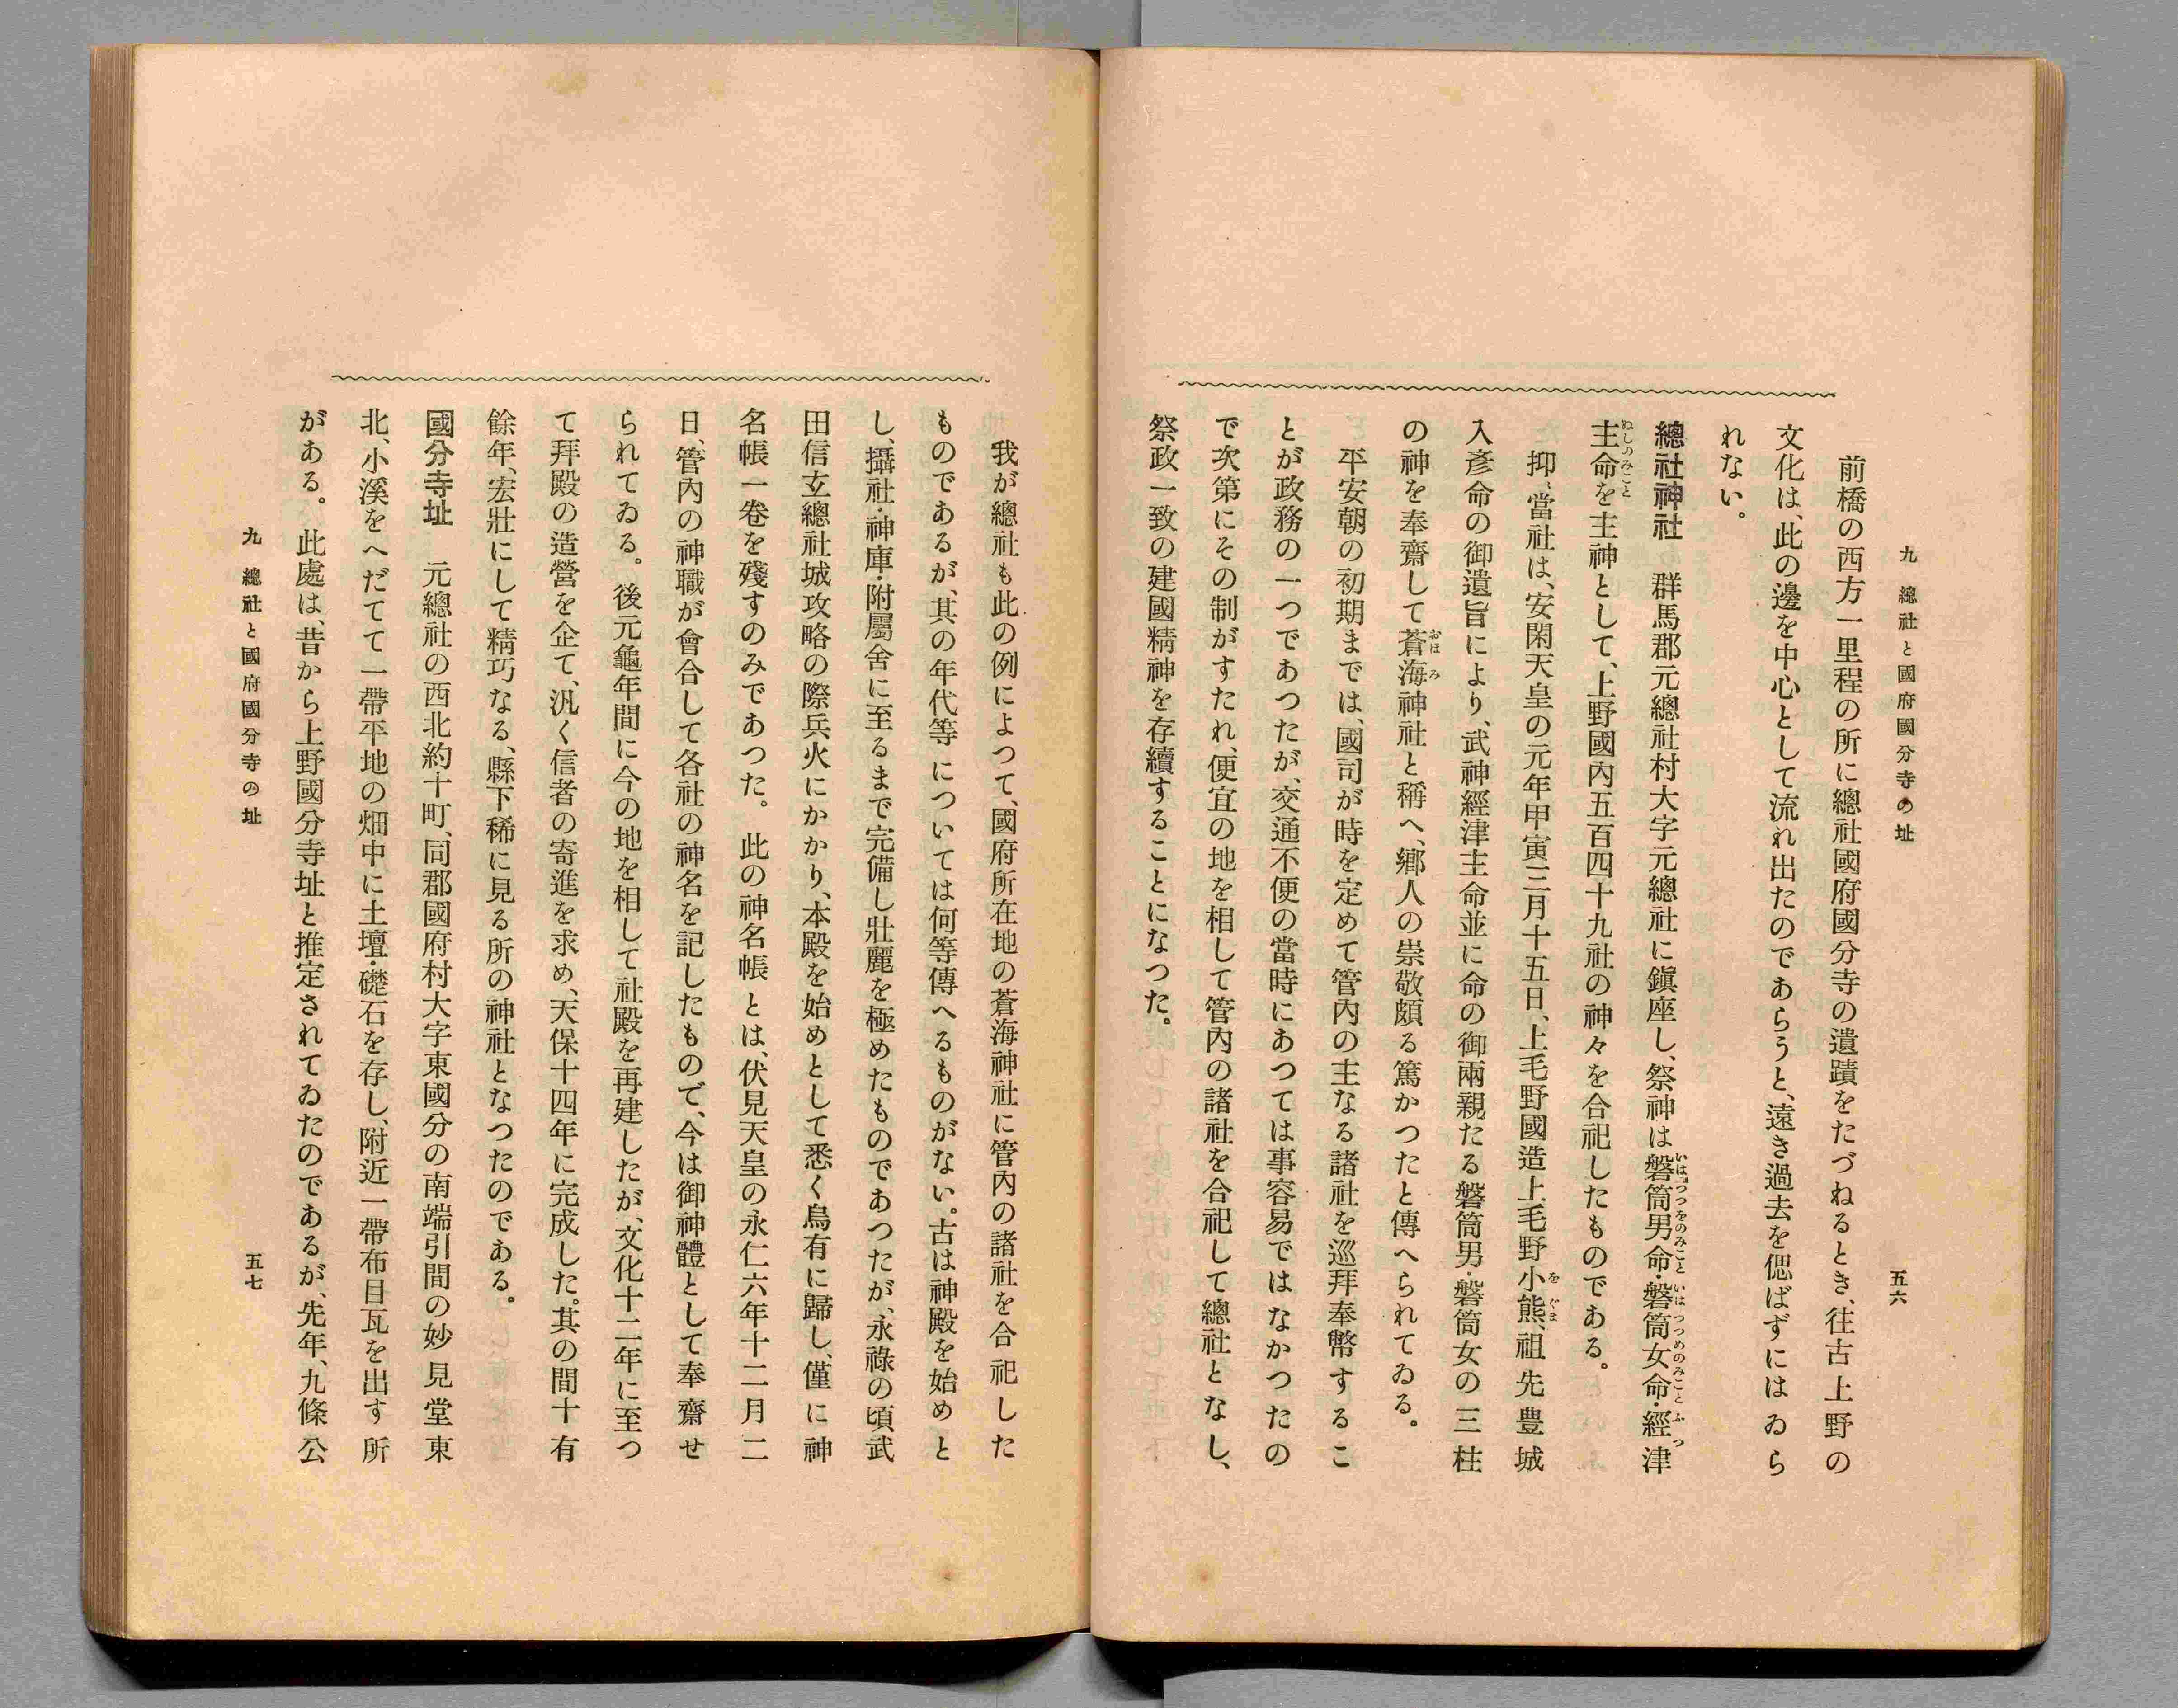 九 總社と國府國分寺の址
五六
前橋の西方一里程の所に總社國府國分寺の遺蹟をたづねるとき、往古上野の
文化は、此の邊を中心として流れ出たのであらうと、遠き過去を偲ばずにはゐら
れない。
總社神社 群馬郡元總社村大字元總社に鎭座し、祭神は磐筒男命・磐筒女命・經津
主命を主神として、上野國內五百四十九社の神々を合祀したものである。
抑〻當社は、安閑天皇の元年甲寅三月十五日、上毛野國造上毛野小熊、祖先豊城
入彥命の御遺旨により、武神經津主命並に命の御兩親たる磐筒男・磐筒女の三柱
の神を奉齋して蒼海神社と稱へ、鄕人の崇敬頗る篤かつたと傳へられてゐる。
平安朝の初期までは、國司が時を定めて管內の主なる諸社を巡拜奉幣するこ
とが政務の一つであつたが、交通不便の當時にあつては事容易ではなかつたの
で次第にその制がすたれ、便宜の地を相して管內の諸社を合祀して總社となし、
祭政一致の建國精神を存續することになつた。
我が總社も此の例によつて、國府所在地の蒼海神社に管內の諸社を合祀した
ものであるが、其の年代等については何等傳へるものがない。古は神殿を始めと
し、攝社・神庫・附屬舍に至るまで完備し壯麗を極めたものであつたが、永祿の頃武
田信玄總社城攻略の際兵火にかかり、本殿を始めとして悉く烏有に歸し、僅に神
名帳一卷を殘すのみであつた。此の神名帳とは、伏見天皇の永仁六年十二月二
日、管內の神職が會合して各社の神名を記したもので、今は御神體として奉齋せ
られてゐる。後元龜年間に今の地を相して社殿を再建したが、文化十二年に至つ
て拜殿の造營を企て、汎く信者の寄進を求め、天保十四年に完成した。其の間十有
餘年、宏壯にして精巧なる、縣下稀に見る所の神社となつたのである。
國分寺址 元總社の西北約十町、同郡國府村大字東國分の南端引間の妙見堂東
北、小溪をへだてて一帶平地の畑中に土壇・礎石を存し、附近一帶布目瓦を出す所
がある。此處は、昔から上野國分寺址と推定されてゐたのであるが、先年、九條公
九 總社と國府國分寺の址
五七